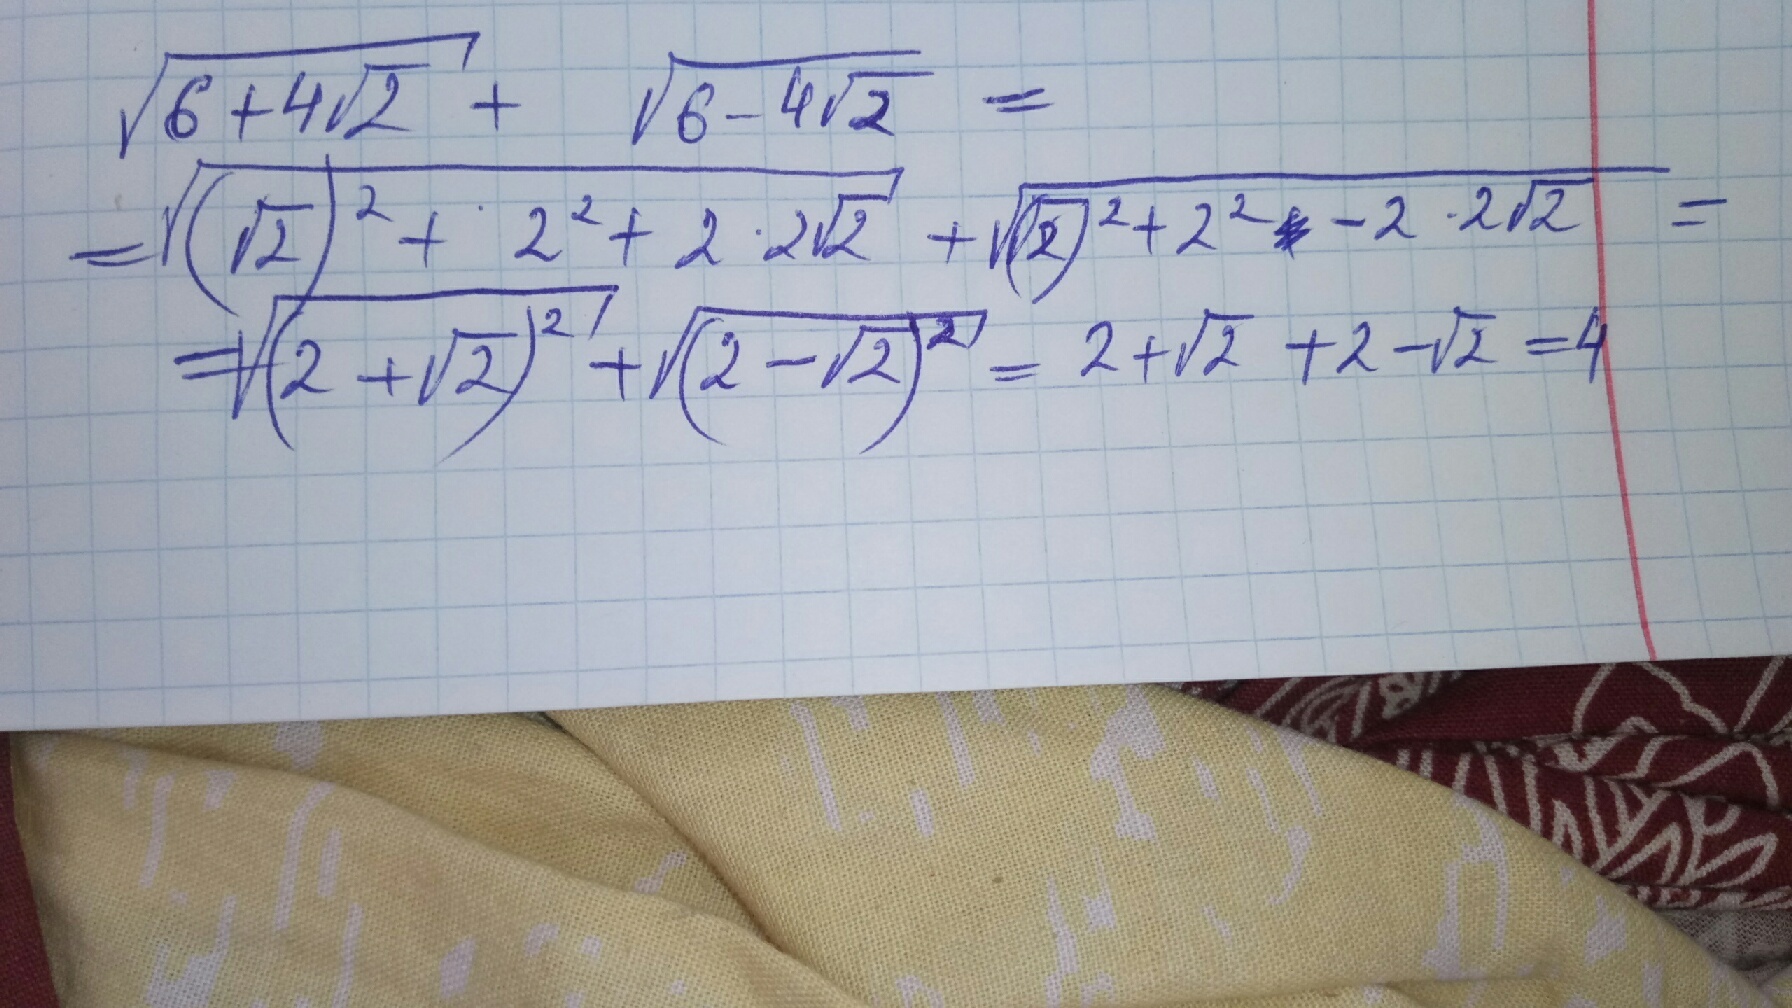 √(6+4√2) + √(6-4√2) =
= √((√2)² + 2² + 2·2√2) + √((√2)² + 2² - 2·2√2) =
= √((2+√2)²) + √((2-√2)²) = 2+√2 +2-√2 = 4